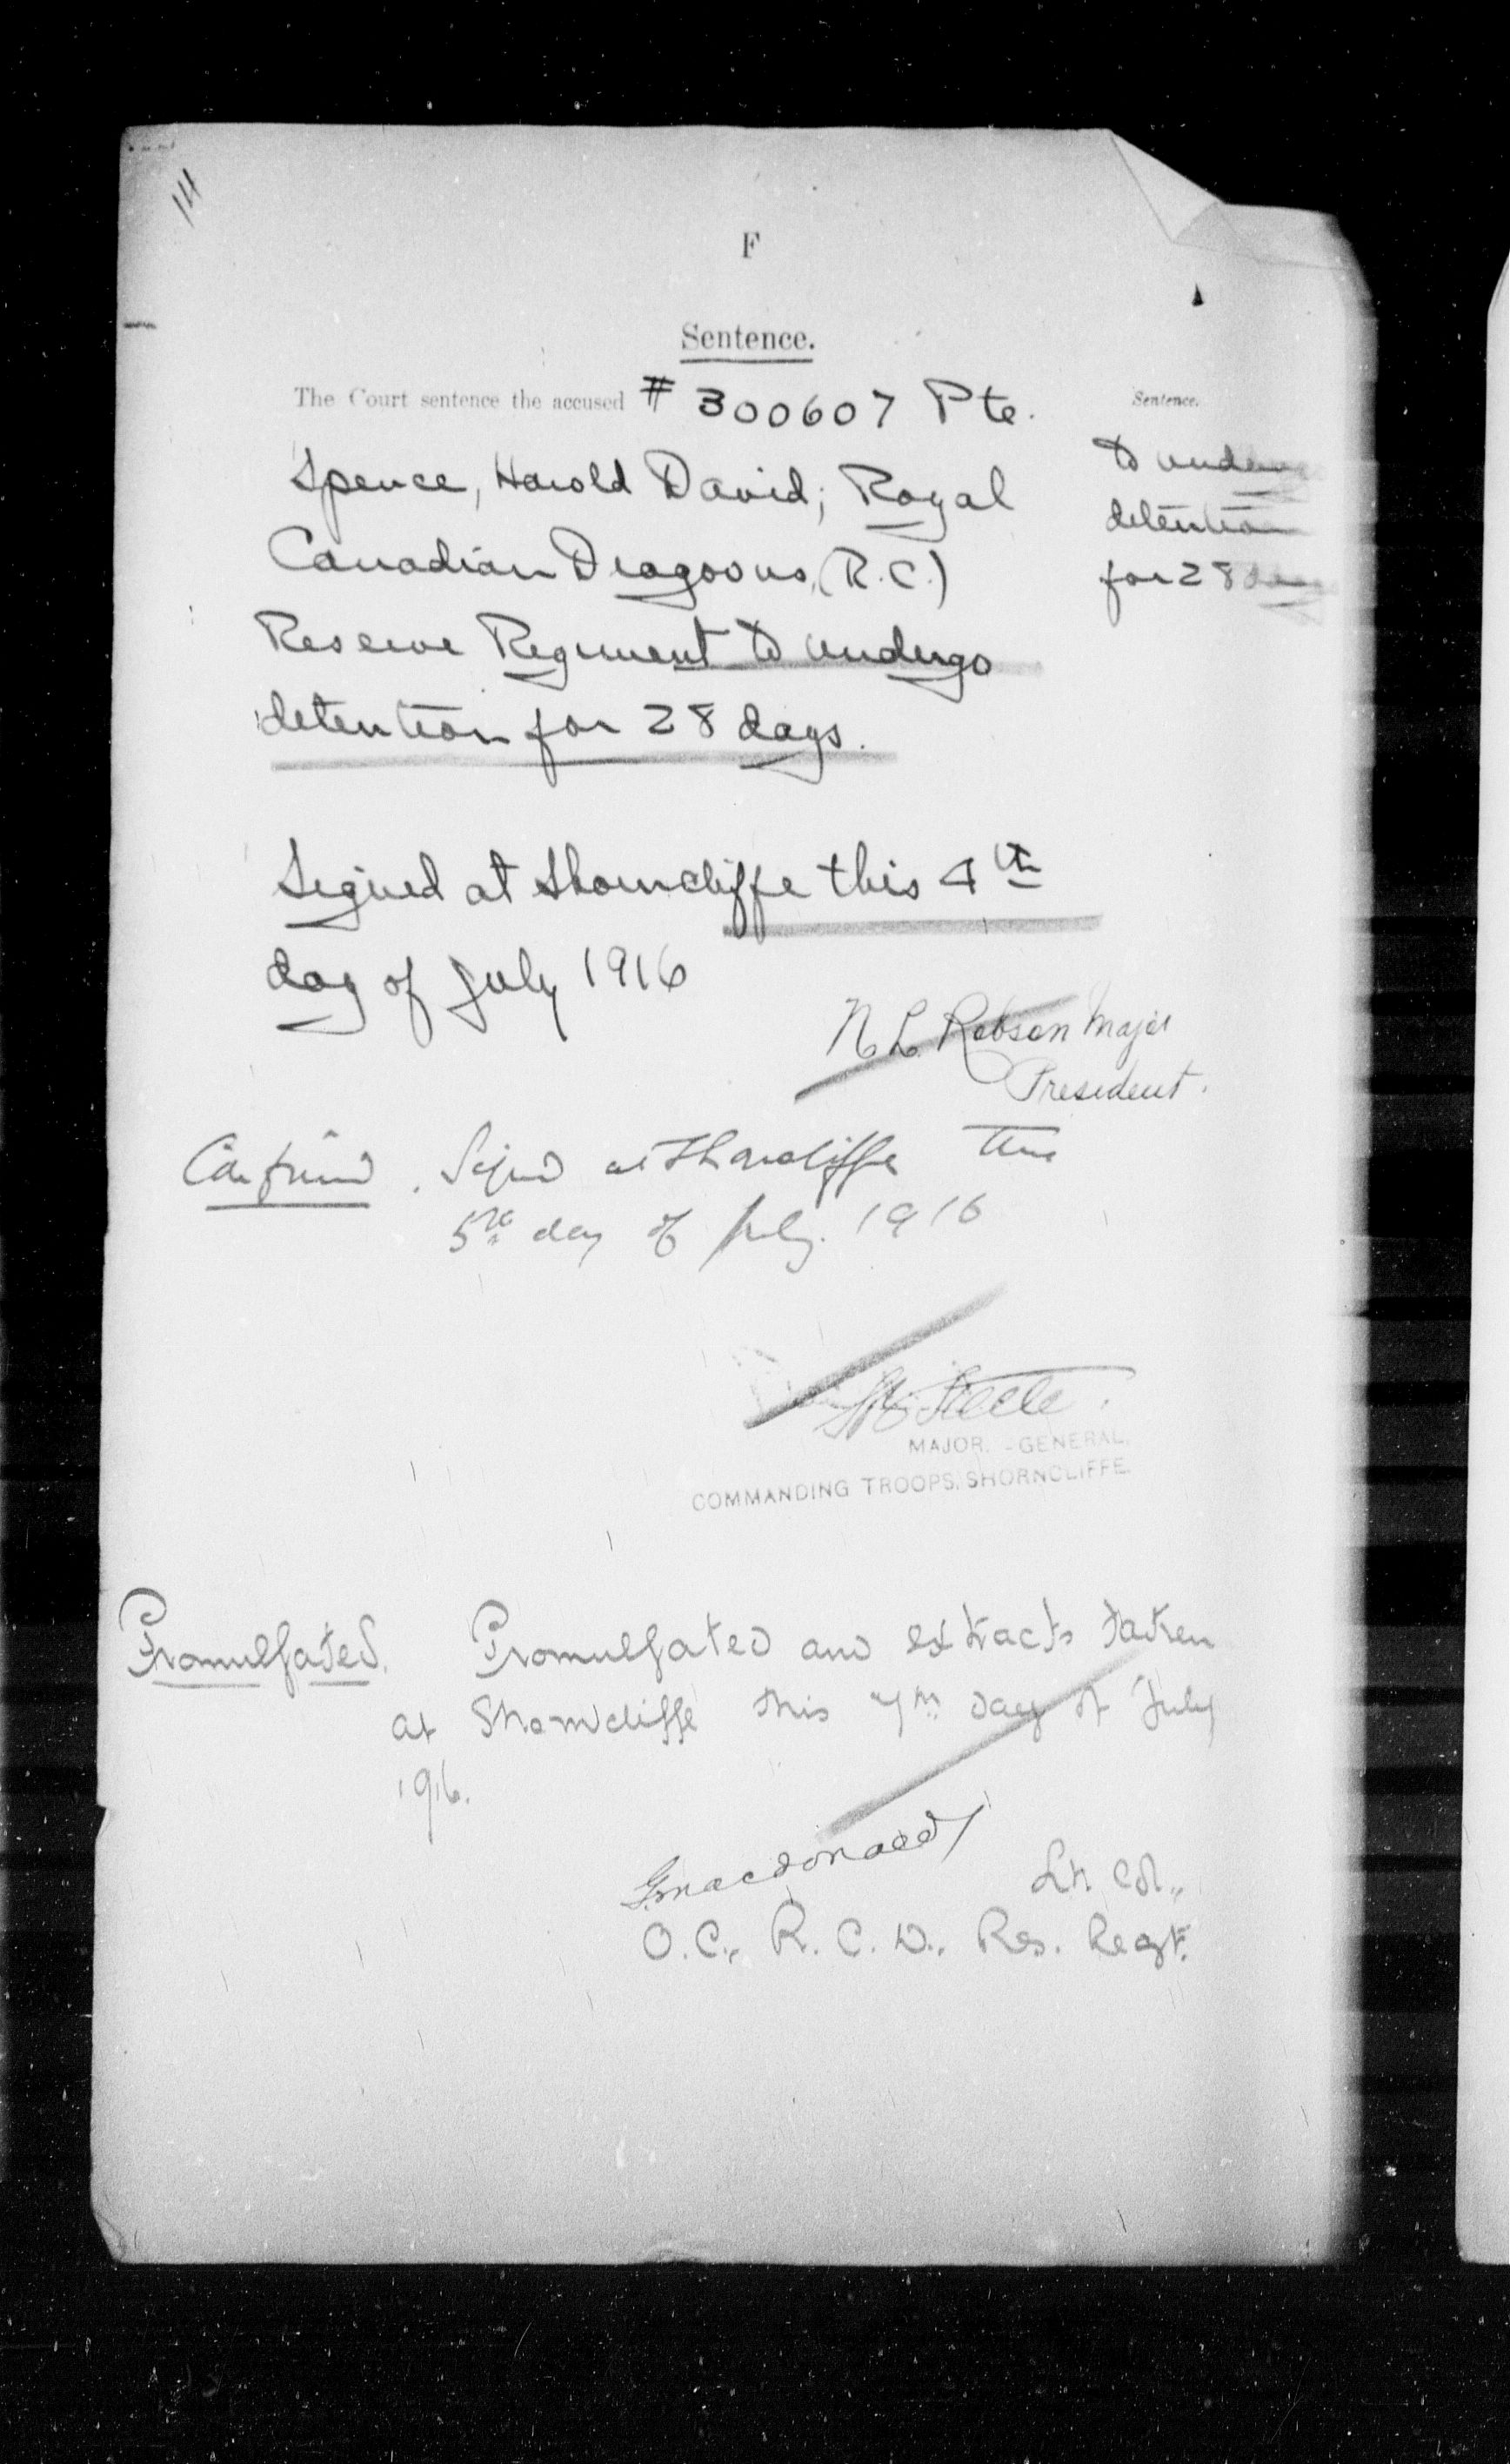 F
Sentence.
The Court sentence the accused # 300607 Pte.
Spence, Harold David; Royal
Canadian Dragoons, (R.C.)
Reserve Regiment to undergo
detention for 28 days.
Sentence.
to undergo
detention
for 28 days
Signed at Shorncliffe this 4th
day of July 1916
N. L. Robson Major
President.
Confirmed. Signed at Shorncliffe this
5th day of July. 1916
S B Steele.
MAJOR. - GENERAL,
COMMANDING TROOPS, SHORNCLIFFE.
Promulgated. Promulgated and extracts taken
at Shorncliffe this 7th day of July
1916.
Macdonald
Lt. Col.,
O.C., R.C.D., Res. Regt.